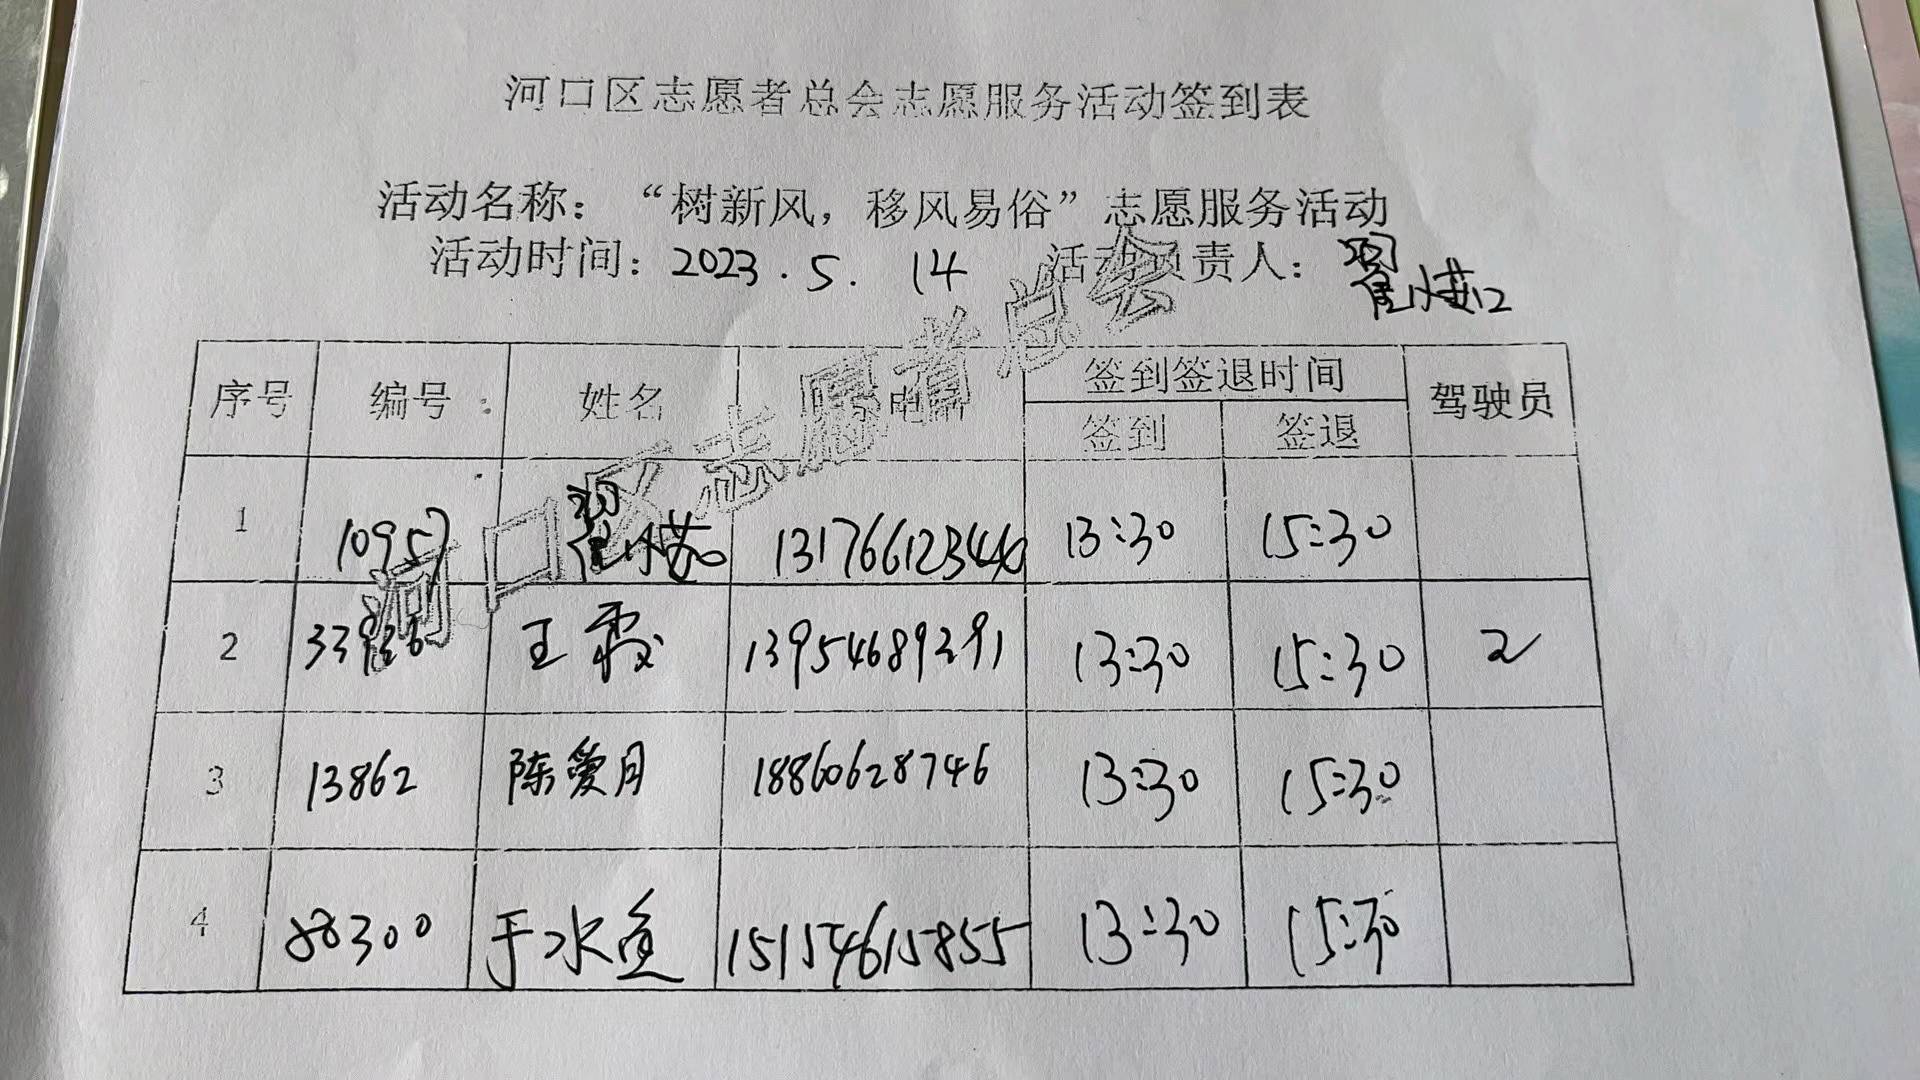 河口区志愿者总会志愿服务活动签到表
活动名称：“树新风，移风易俗”志愿服务活动
活动时间：2023.5.14 活动负责人：翟小
河口区志愿者总会
序号 编号 姓名 电 签到签退时间 驾驶员
签到 签退
1 10957 翟小 13176612346 13:30 15:30
2 王霞 13954689291 13:30 15:30 2
3 13862 陈爱月 18860628746 13:30 15:30
4 88300 于水 15154615855 13:30 15:30